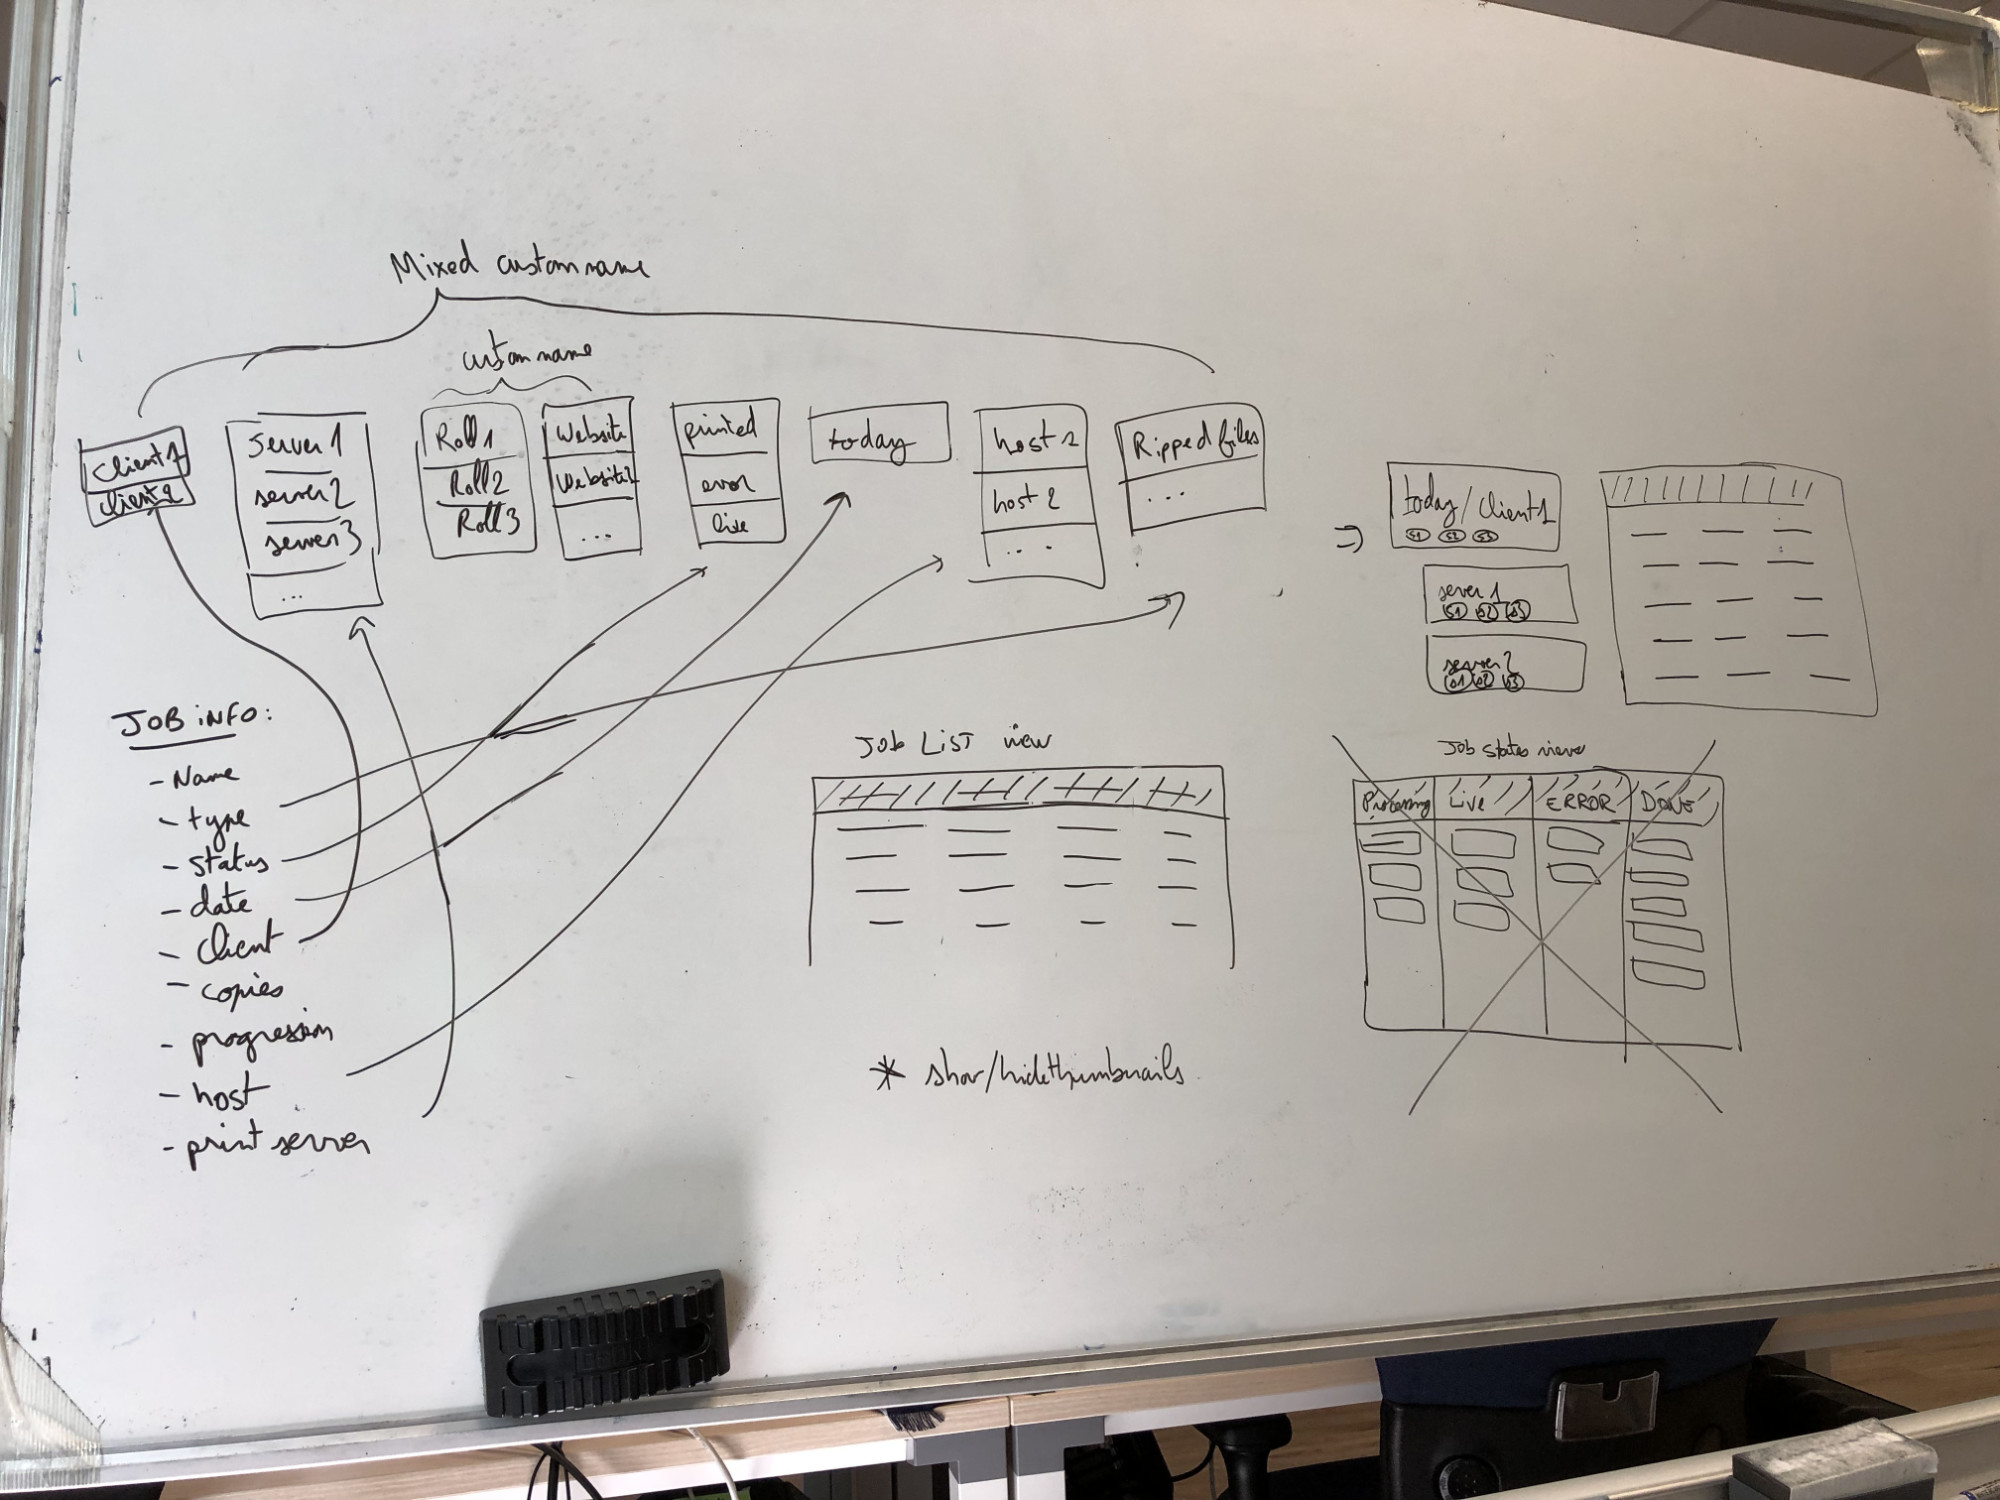 Mixed custom name
custom name
Client 1
Client 2
Server 1
server 2
server 3
...
Roll 1
Roll 2
Roll 3
Website
Website 2
...
printed
error
live
today
host 1
host 2
...
Ripped files
...
=>
today / Client 1
S1 S2 S3
server 1
S1 S2 S3
server 2
S1 S2 S3
JOB INFO:
- Name
- type
- status
- date
- Client
- copies
- progression
- host
- print server
Job List view
* show/hide thumbnails
Job states view
Processing
Live
ERROR
DONE